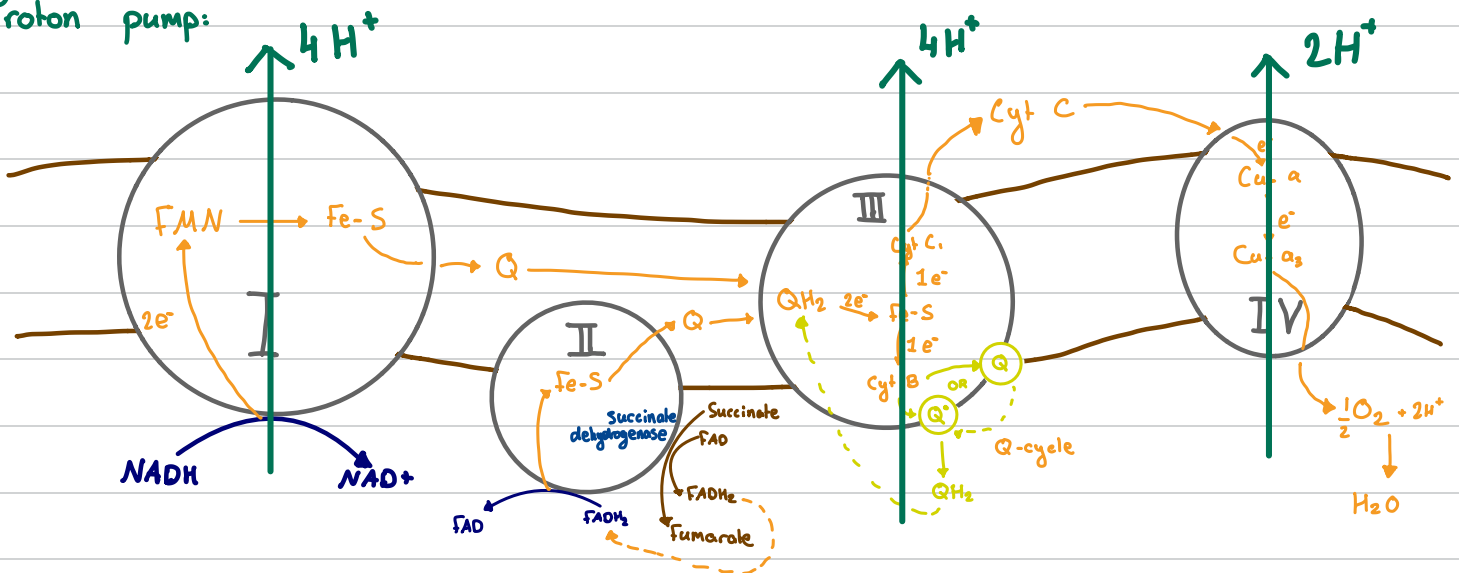 roton pump:
4H⁺
4H⁺
2H⁺
FMN
Fe-S
2e⁻
I
NADH
NAD+
Q
II
Q
Fe-S
Succinate
dehydrogenase
Succinate
FAD
FADH₂
Fumarate
FAD
FADH₂
III
Cyt C
Cyt C₁
1e⁻
QH₂
2e⁻
Fe-S
1e⁻
Cyt B
OR
Q
Q⁻
Q-cycle
QH₂
e⁻
Cu a
e⁻
Cu a₃
IV
½O₂ + 2H⁺
H₂O